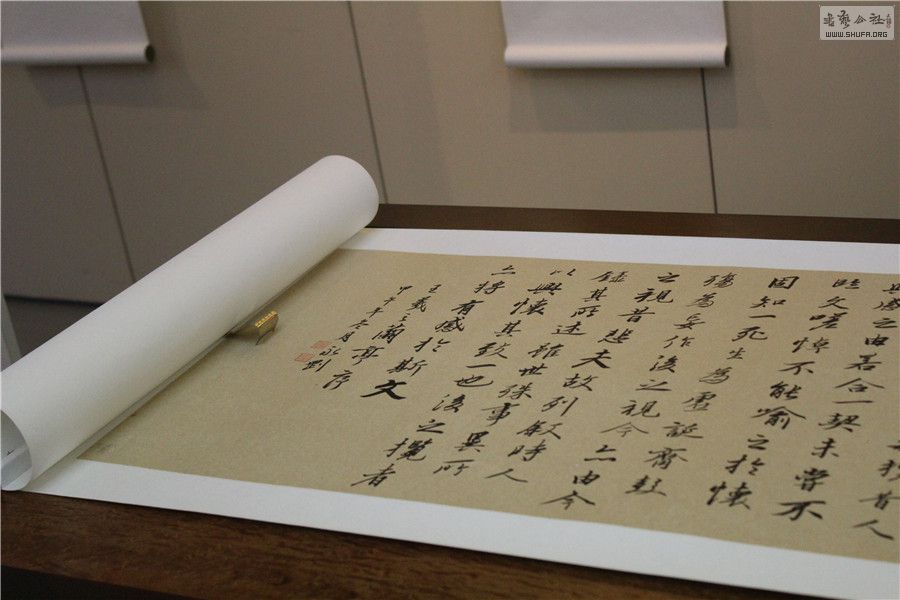 攬昔人
興感之由若合一契未嘗不
臨文嗟悼不能喻之於懷
固知一死生為虛誕齊彭
殤為妄作後之視今亦由今
之視昔悲夫故列敘時人
錄其所述雖世殊事異所
以興懷其致一也後之攬者
亦將有感於斯文
王羲之蘭亭序
甲午年冬月
書藝公社
WWW.SHUFA.ORG